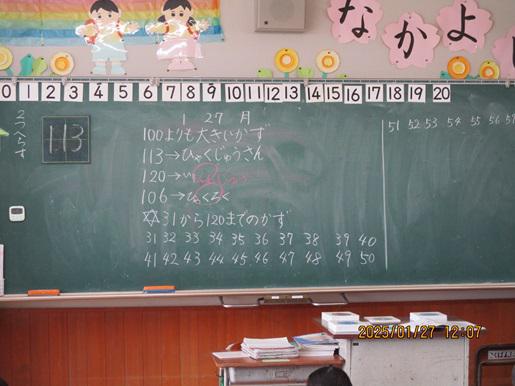 なかよし
0 1 2 3 4 5 6 7 8 9 10 11 12 13 14 15 16 17 18 19 20
2つへらす
113
1 27 月
100よりも大きいかず
113→ひゃくじゅうさん
120→
106→ひゃくろく
31から120までのかず
31 32 33 34 35 36 37 38 39 40
41 42 43 44 45 46 47 48 49 50
51 52 53 54 55 56 57
2025/01/27 12:07